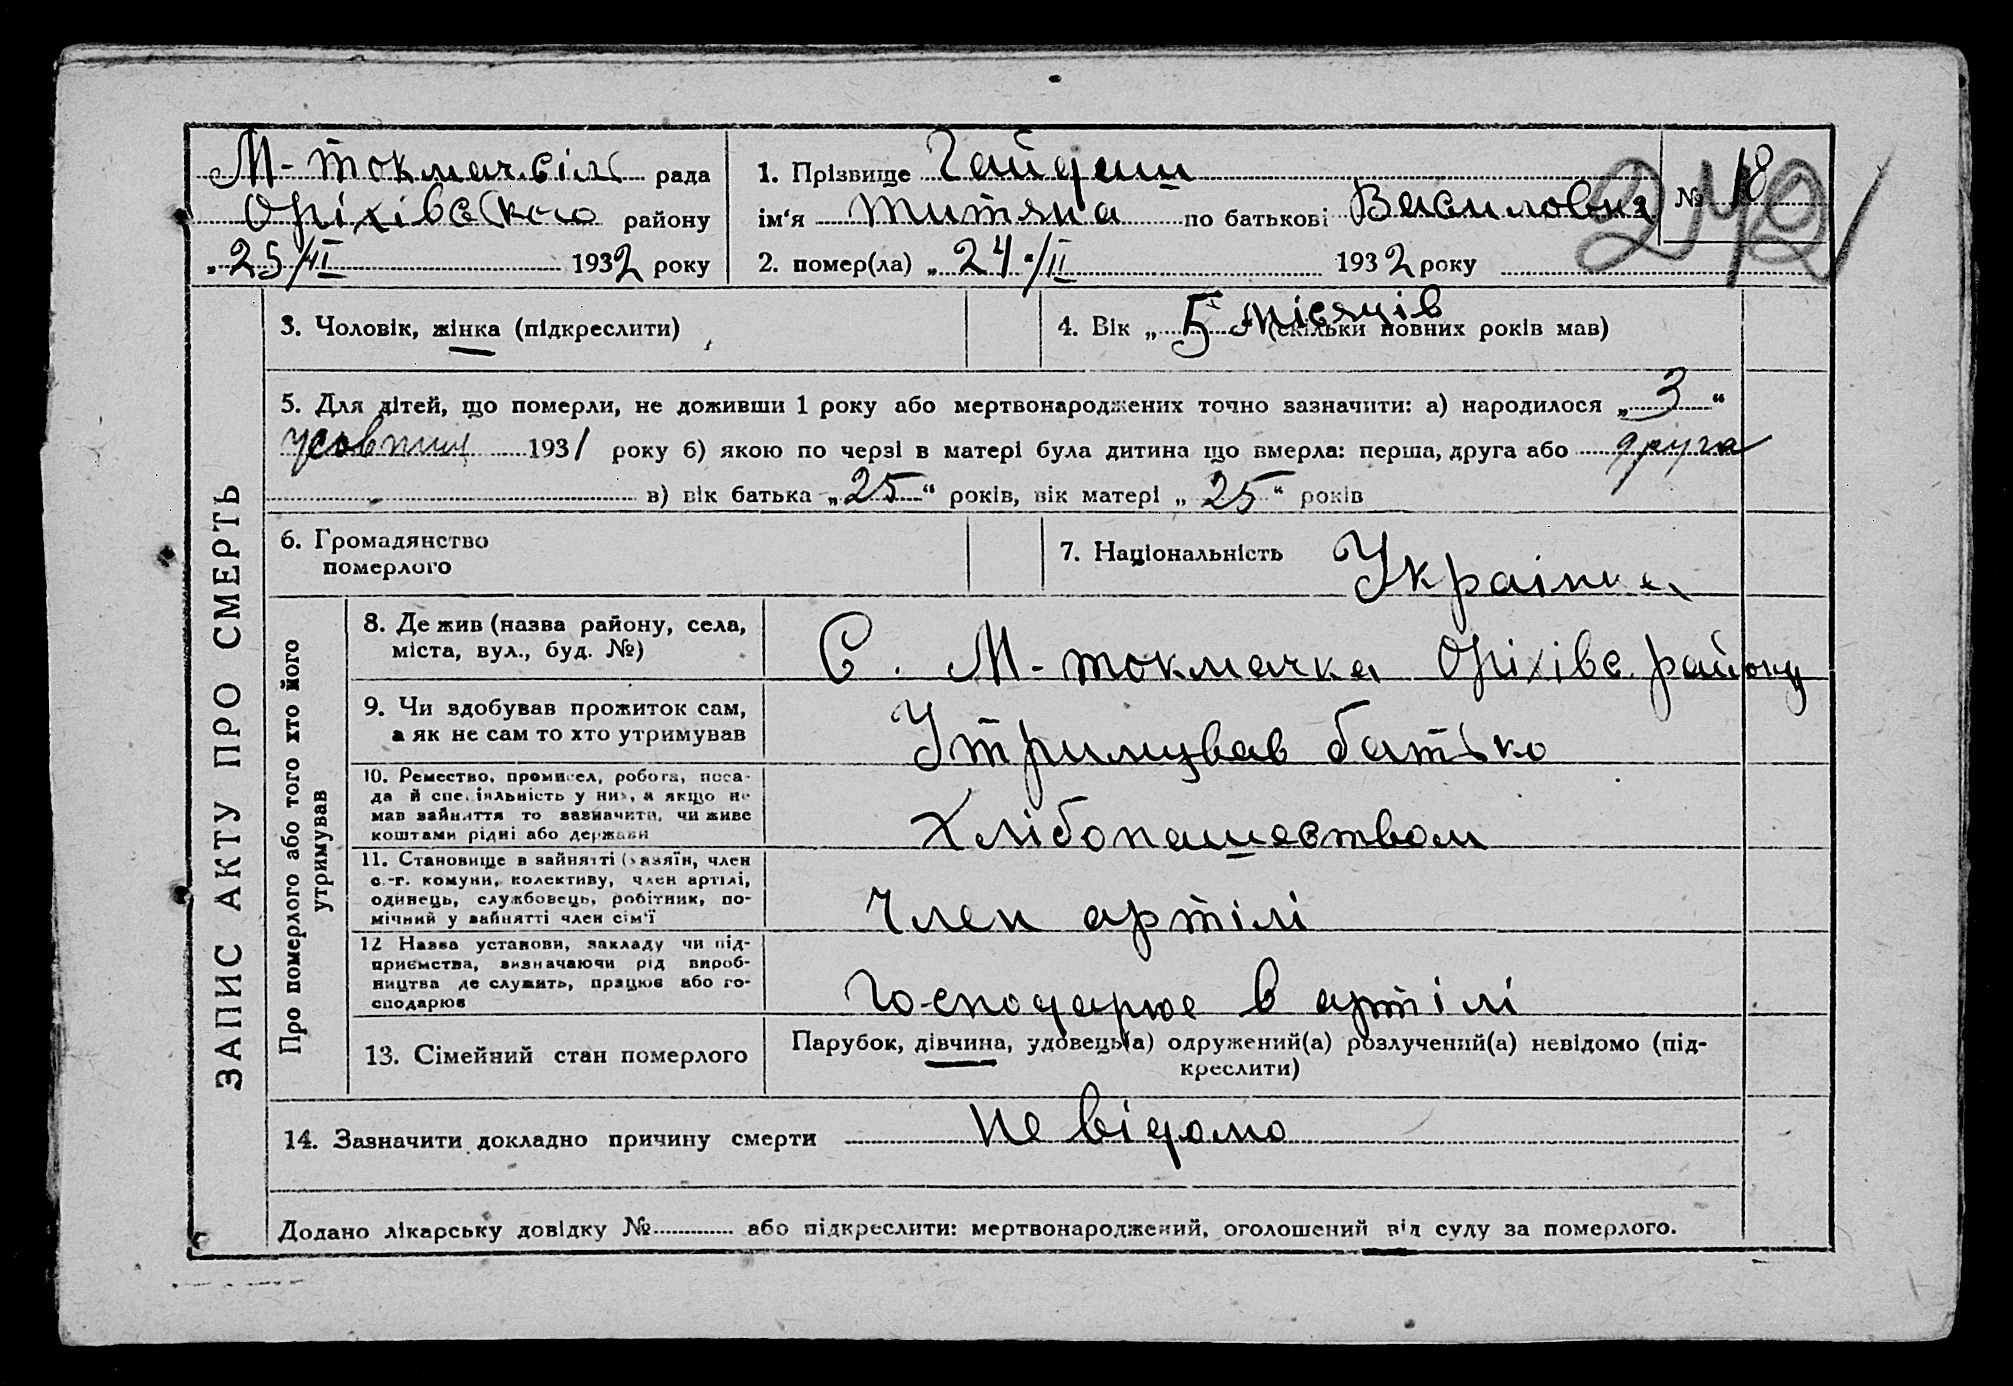 М-токмачсіль рада
Оріхівського району
„25/II 1932 року
1. Прізвище Гайдаш
ім'я Титяна по батькові Василовня
2. помер(ла) „24"/II 1932 року
№ 18
242
3. Чоловік, жінка (підкреслити)
4. Вік „5 місяців (скільки повних років мав)
5. Для дітей, що померли, не доживши 1 року або мертвонароджених точно зазначити: а) народилося „3“
жовтня 1931 року б) якою по черзі в матері була дитина що вмерла: перша, друга або друга
в) вік батька „25“ років, вік матері „25“ років
6. Громадянство
померлого
7. Національність Українка
ЗАПИС АКТУ ПРО СМЕРТЬ
Про померлого або того хто його
утримував
8. Де жив (назва району, села,
міста, вул., буд. №)
С. М-токмачка Оріхівс. району
9. Чи здобував прожиток сам,
а як не сам то хто утримував
Утримував батько
10. Ремество, промисел, робота, поса-
да й спеціяльність у них, а якщо не
мав зайняття то зазначити, чи живе
коштами рідні або держави
Хлібопашеством
11. Становище в зайнятті (хазяїн, член
с.-г. комуни, колективу, член артілі,
одинець, службовець, робітник, по-
мічний у зайнятті член сім'ї
Член артілі
12 Назва установи, закладу чи під-
приємства, визначаючи рід вироб-
ництва де служить, працює або го-
сподарює
Господарює в артілі
13. Сімейний стан померлого
Парубок, дівчина, удовець(а) одружений(а) розлучений(а) невідомо (під-
креслити)
14. Зазначити докладно причину смерти не відомо
Додано лікарську довідку № або підкреслити: мертвонароджений, оголошений від суду за померлого.